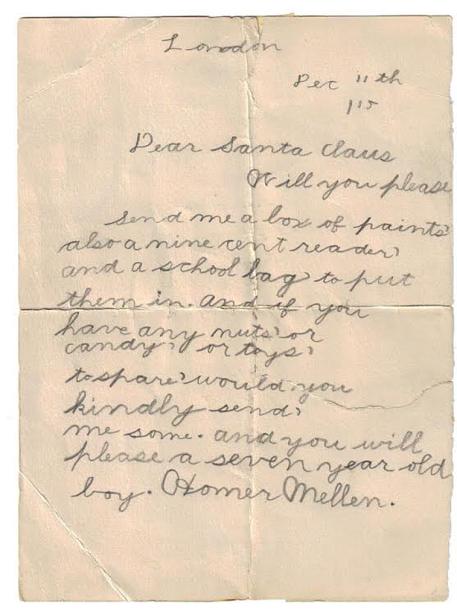 London
Dec 11th
1'15
Dear Santa Claus
Will you please
send me a box of paints,
also a nine cent reader,
and a school bag, to put
them in. and if you
have any nuts, or
candy, or toys,
to spare, would you
kindly send,
me some. and you will
please a seven year old
boy. Homer Mellen.